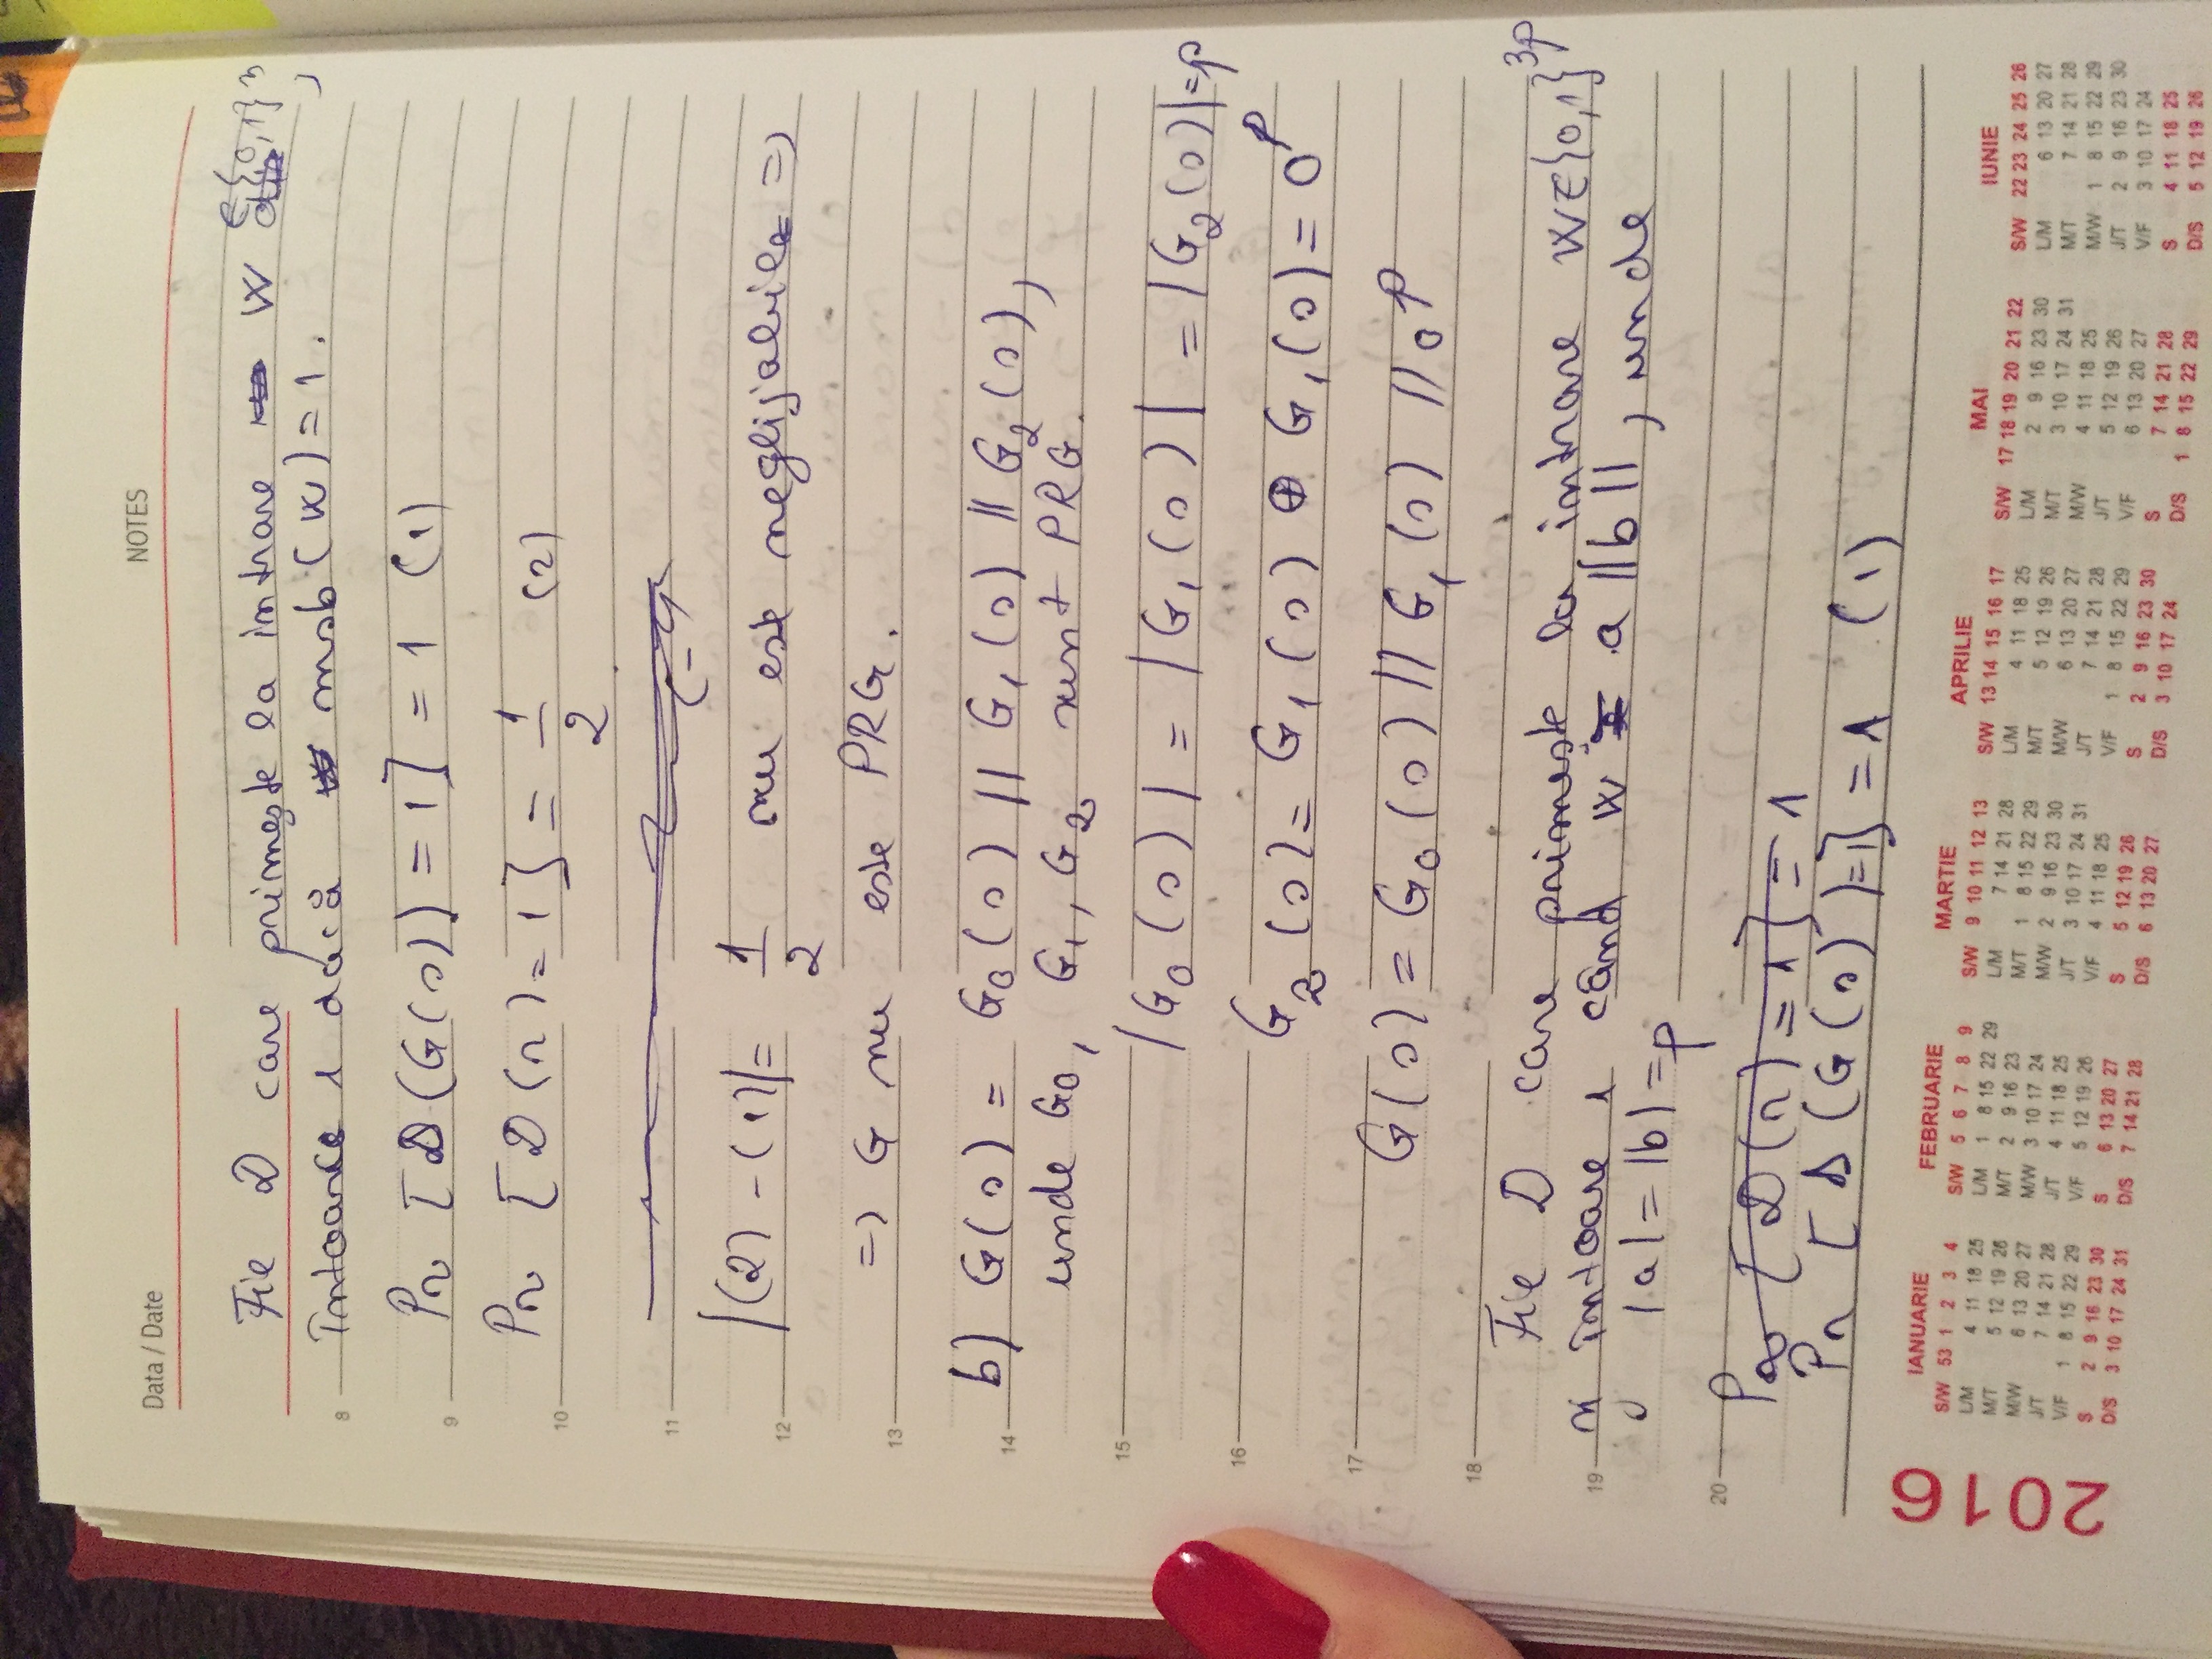 Data / Date
NOTES
Fie D care primește la intrare W ∈{0,1}³,
8 întoarce 1 dacă msb(W)=1.
9 Pr [D(G(s))=1] = 1 (1)
10 Pr [D(r)=1] = 1/2 (2)
11
12 |(2) - (1)| = 1/2 nu este neglijabilă =>
13 => G nu este PRG.
14 b) G(s) = G₀(s) || G₁(s) || G₂(s),
unde G₀, G₁, G₂ sunt PRG.
15
|G₀(s)| = |G₁(s)| = |G₂(s)|=p
16
G₂(s) = G₁(s) ⊕ G₁(s) = 0ᵖ
17
G(s) = G₀(s) || G₁(s) || 0ᵖ
18
Fie D care primește la intrare W∈{0,1}³ᵖ
19 și întoarce 1 când W = a ||b ||, unde
|a|=|b|=p
20 Pr [D(r)=1] = 1
Pr [D(G(s))=1] = 1 (1)
2016
IANUARIE
S/W 53 1 2 3 4
L/M 4 11 18 25
M/T 5 12 19 26
M/W 6 13 20 27
J/T 7 14 21 28
V/F 1 8 15 22 29
S 2 9 16 23 30
D/S 3 10 17 24 31
FEBRUARIE
S/W 5 6 7 8 9
L/M 1 8 15 22 29
M/T 2 9 16 23
M/W 3 10 17 24
J/T 4 11 18 25
V/F 5 12 19 26
S 6 13 20 27
D/S 7 14 21 28
MARTIE
S/W 9 10 11 12 13
L/M 7 14 21 28
M/T 1 8 15 22 29
M/W 2 9 16 23 30
J/T 3 10 17 24 31
V/F 4 11 18 25
S 5 12 19 26
D/S 6 13 20 27
APRILIE
S/W 13 14 15 16 17
L/M 4 11 18 25
M/T 5 12 19 26
M/W 6 13 20 27
J/T 7 14 21 28
V/F 1 8 15 22 29
S 2 9 16 23 30
D/S 3 10 17 24
MAI
S/W 17 18 19 20 21 22
L/M 2 9 16 23 30
M/T 3 10 17 24 31
M/W 4 11 18 25
J/T 5 12 19 26
V/F 6 13 20 27
S 7 14 21 28
D/S 1 8 15 22 29
IUNIE
S/W 22 23 24 25 26
L/M 6 13 20 27
M/T 7 14 21 28
M/W 1 8 15 22 29
J/T 2 9 16 23 30
V/F 3 10 17 24
S 4 11 18 25
D/S 5 12 19 26